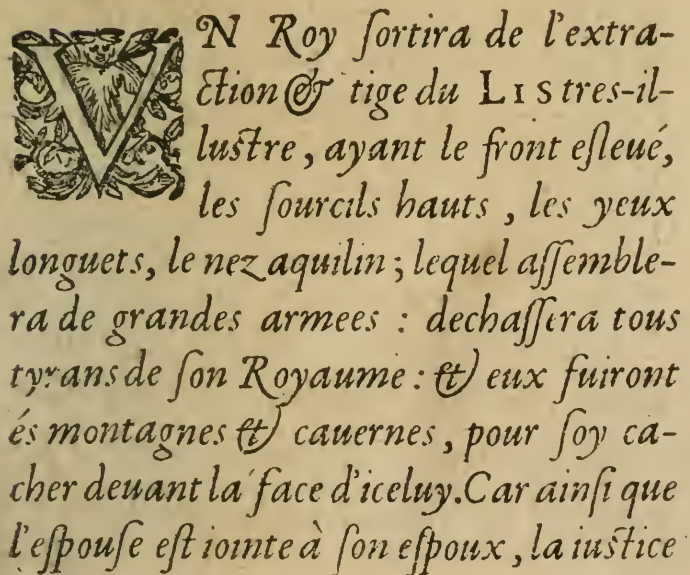 VN Roy ſortira de l'extra-
ction & tige du LIS tres-il-
luſtre, ayant le front eſleué,
les ſourcils hauts, les yeux
longuets, le nez aquilin; lequel aſſemble-
ra de grandes armees : dechaſſera tous
tyrans de ſon Royaume : & eux fuiront
és montagnes & cauernes, pour ſoy ca-
cher deuant la face d'iceluy. Car ainſi que
l'eſpouſe eſt iointe à ſon eſpoux, la iuſtice